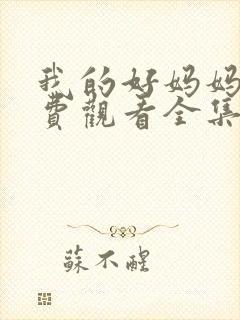 我的好妈妈
费觀看全集
蘇不醒